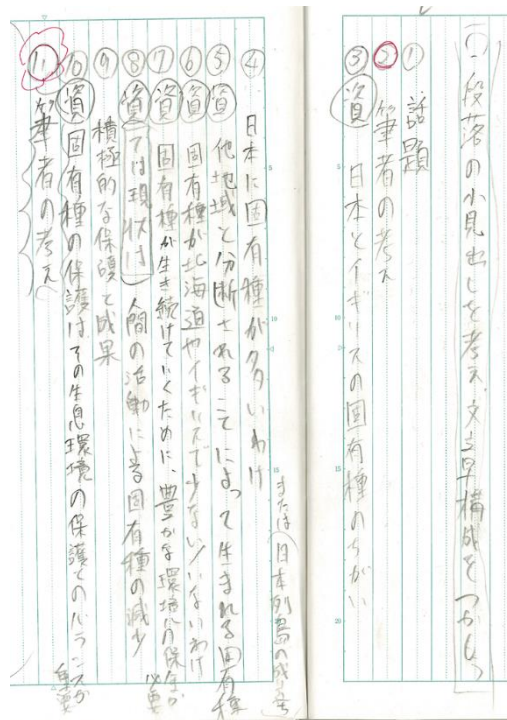 ○段落の小見出しを考え、文章構成をつかもう
① 話題
② 筆者の考え
③ 資 日本とイギリスの固有種のちがい
または(日本列島の成り立ち)
④ 日本に固有種が多いわけ
⑤ 資 他地域と分断されることによって生まれる固有種
⑥ 資 固有種が北海道やイギリスで少ない/いないわけ
⑦ 資 固有種が生き続けていくために、豊かな環境の保全が必要
⑧ 資 では現状は 人間の活動による固有種の減少
⑨ 積極的な保護と成果
⑩ 資 固有種の保護はその生息環境の保護とのバランスが重要
⑪ 筆者の考え